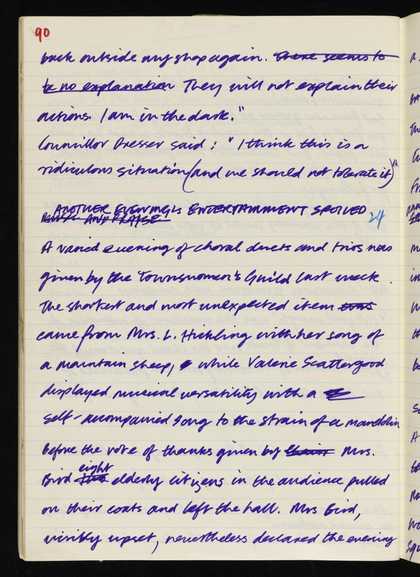 90
back outside any shop again. There seems to
be no explanation They will not explain their
actions. I am in the dark."
Councillor Dresser said: "I think this is a
ridiculous situation (and we should not tolerate it)"
ANOTHER EVENING'S ENTERTAINMENT SPOILED
AND PRAISE
24
A varied evening of choral duets and trios was
given by the Townswomen's Guild last week.
The shortest and most unexpected item was
came from Mrs. L. Hickling with her song of
a mountain sheep, while Valerie Scattergood
displayed musical versatility with a
self-accompanied song to the strain of a mandolin
Before the vote of thanks given by Mrs.
eight
Bird elderly citizens in the audience pulled
on their coats and left the hall. Mrs Bird,
visibly upset, nevertheless declared the evening